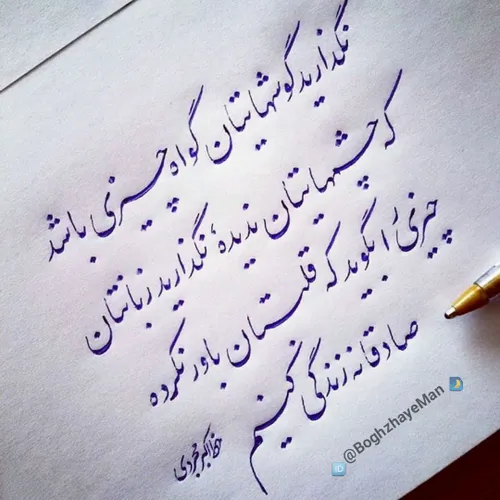 نگذارید گوشهایتان گواه چیزی باشد
که چشمهایتان ندیده، نگذارید زبانتان
چیزی را بگوید که قلبتان باور نکرده
صادقانه زندگی کنیم
خط اکبر
🆔 @BoghzhayeMan 🌛